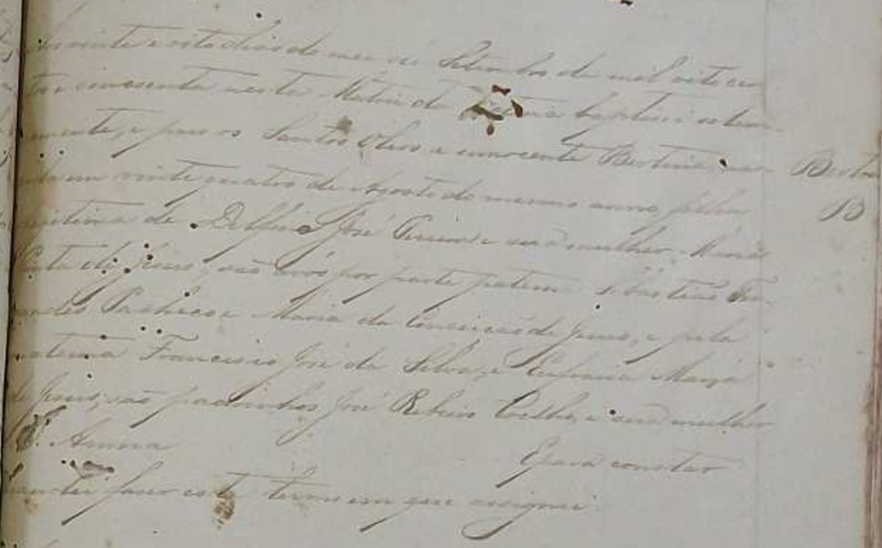 Aos vinte e oito dias do mez de Setembro de mil oito cen
tos e cincoenta nesta Matriz da baptisei solem
nemente, e puz os Santos Oleos a innocente
em vinte quatro de Agosto do mesmo anno, filha
legitima de Delfino José Pereira e sua mulher Maria
de Jesus, são avós por parte paterna Sebastião Fer
nandes Pacheco e Maria da Conceição de Jesus, e pela
materna Francisco José da Silva, e Eufrasia Maria
de Jesus, são padrinhos José Ribeiro Coelho, e sua mulher
D. Anna E para constar
mandei fazer este termo em que assignei.
B